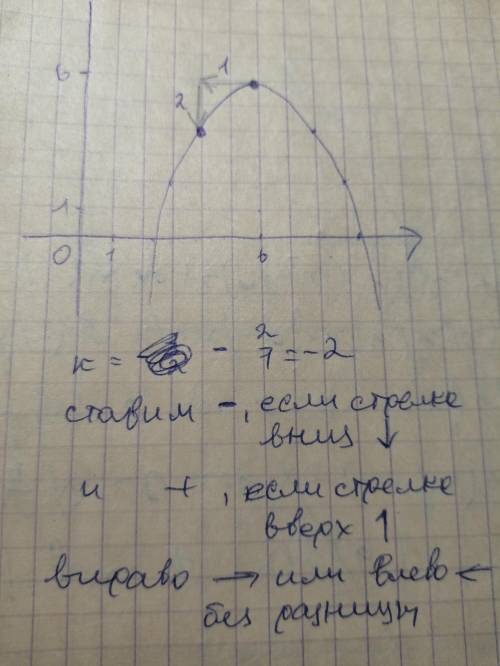 6
1
2
1
0 1 6
к = - 2/1 = -2
ставим -, если стрелка
вниз ↓
и +, если стрелка
вверх ↑
вправо → или влево ←
без разницы